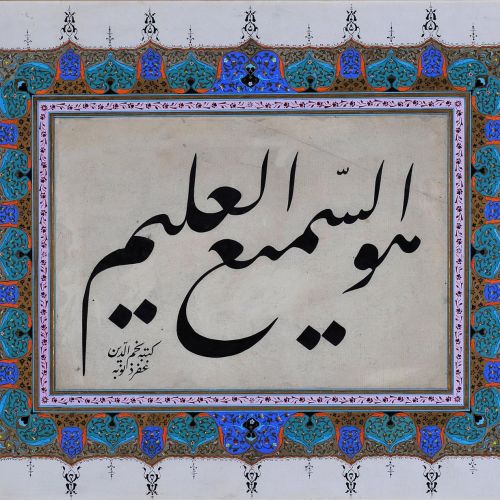 هو السّمیع العلیم
کتبه نجم الدین
غفر ذنوبه